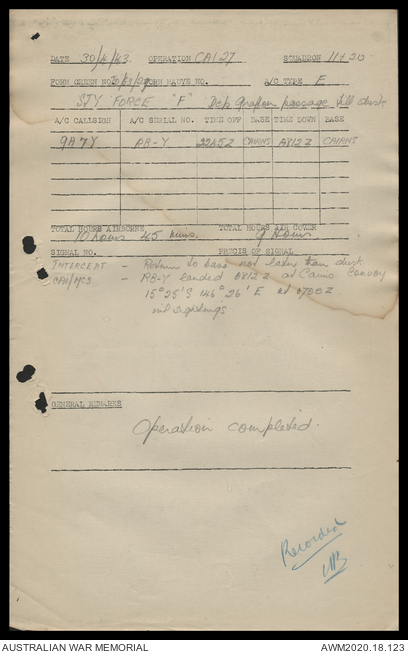 DATE 30/4/43. OPERATION CA127 SQUADRON 11+20
FORM GREEN NO. FORM MAUVE NO. A/C TYPE E
STY FORCE "F" Dep Grafton passage till dusk
A/C CALLSIGN A/C SERIAL NO. TIME OFF BASE TIME DOWN BASE
9A7Y RB-Y 2245Z CAIRNS 0812Z CAIRNS
TOTAL HOURS AIRBORNE TOTAL HOURS AIR COVER
10 hours 45 mins. 9 hours
SIGNAL NO. PRECIS OF SIGNAL
INTERCEPT - Return to base not later than dusk
- RB-Y landed 0812Z at Cairns Convoy
15° 25'S 146° 26'E at 0700Z
nil sightings
GENERAL REMARKS
Operation completed.
Recorded
AUSTRALIAN WAR MEMORIAL AWM2020.18.123